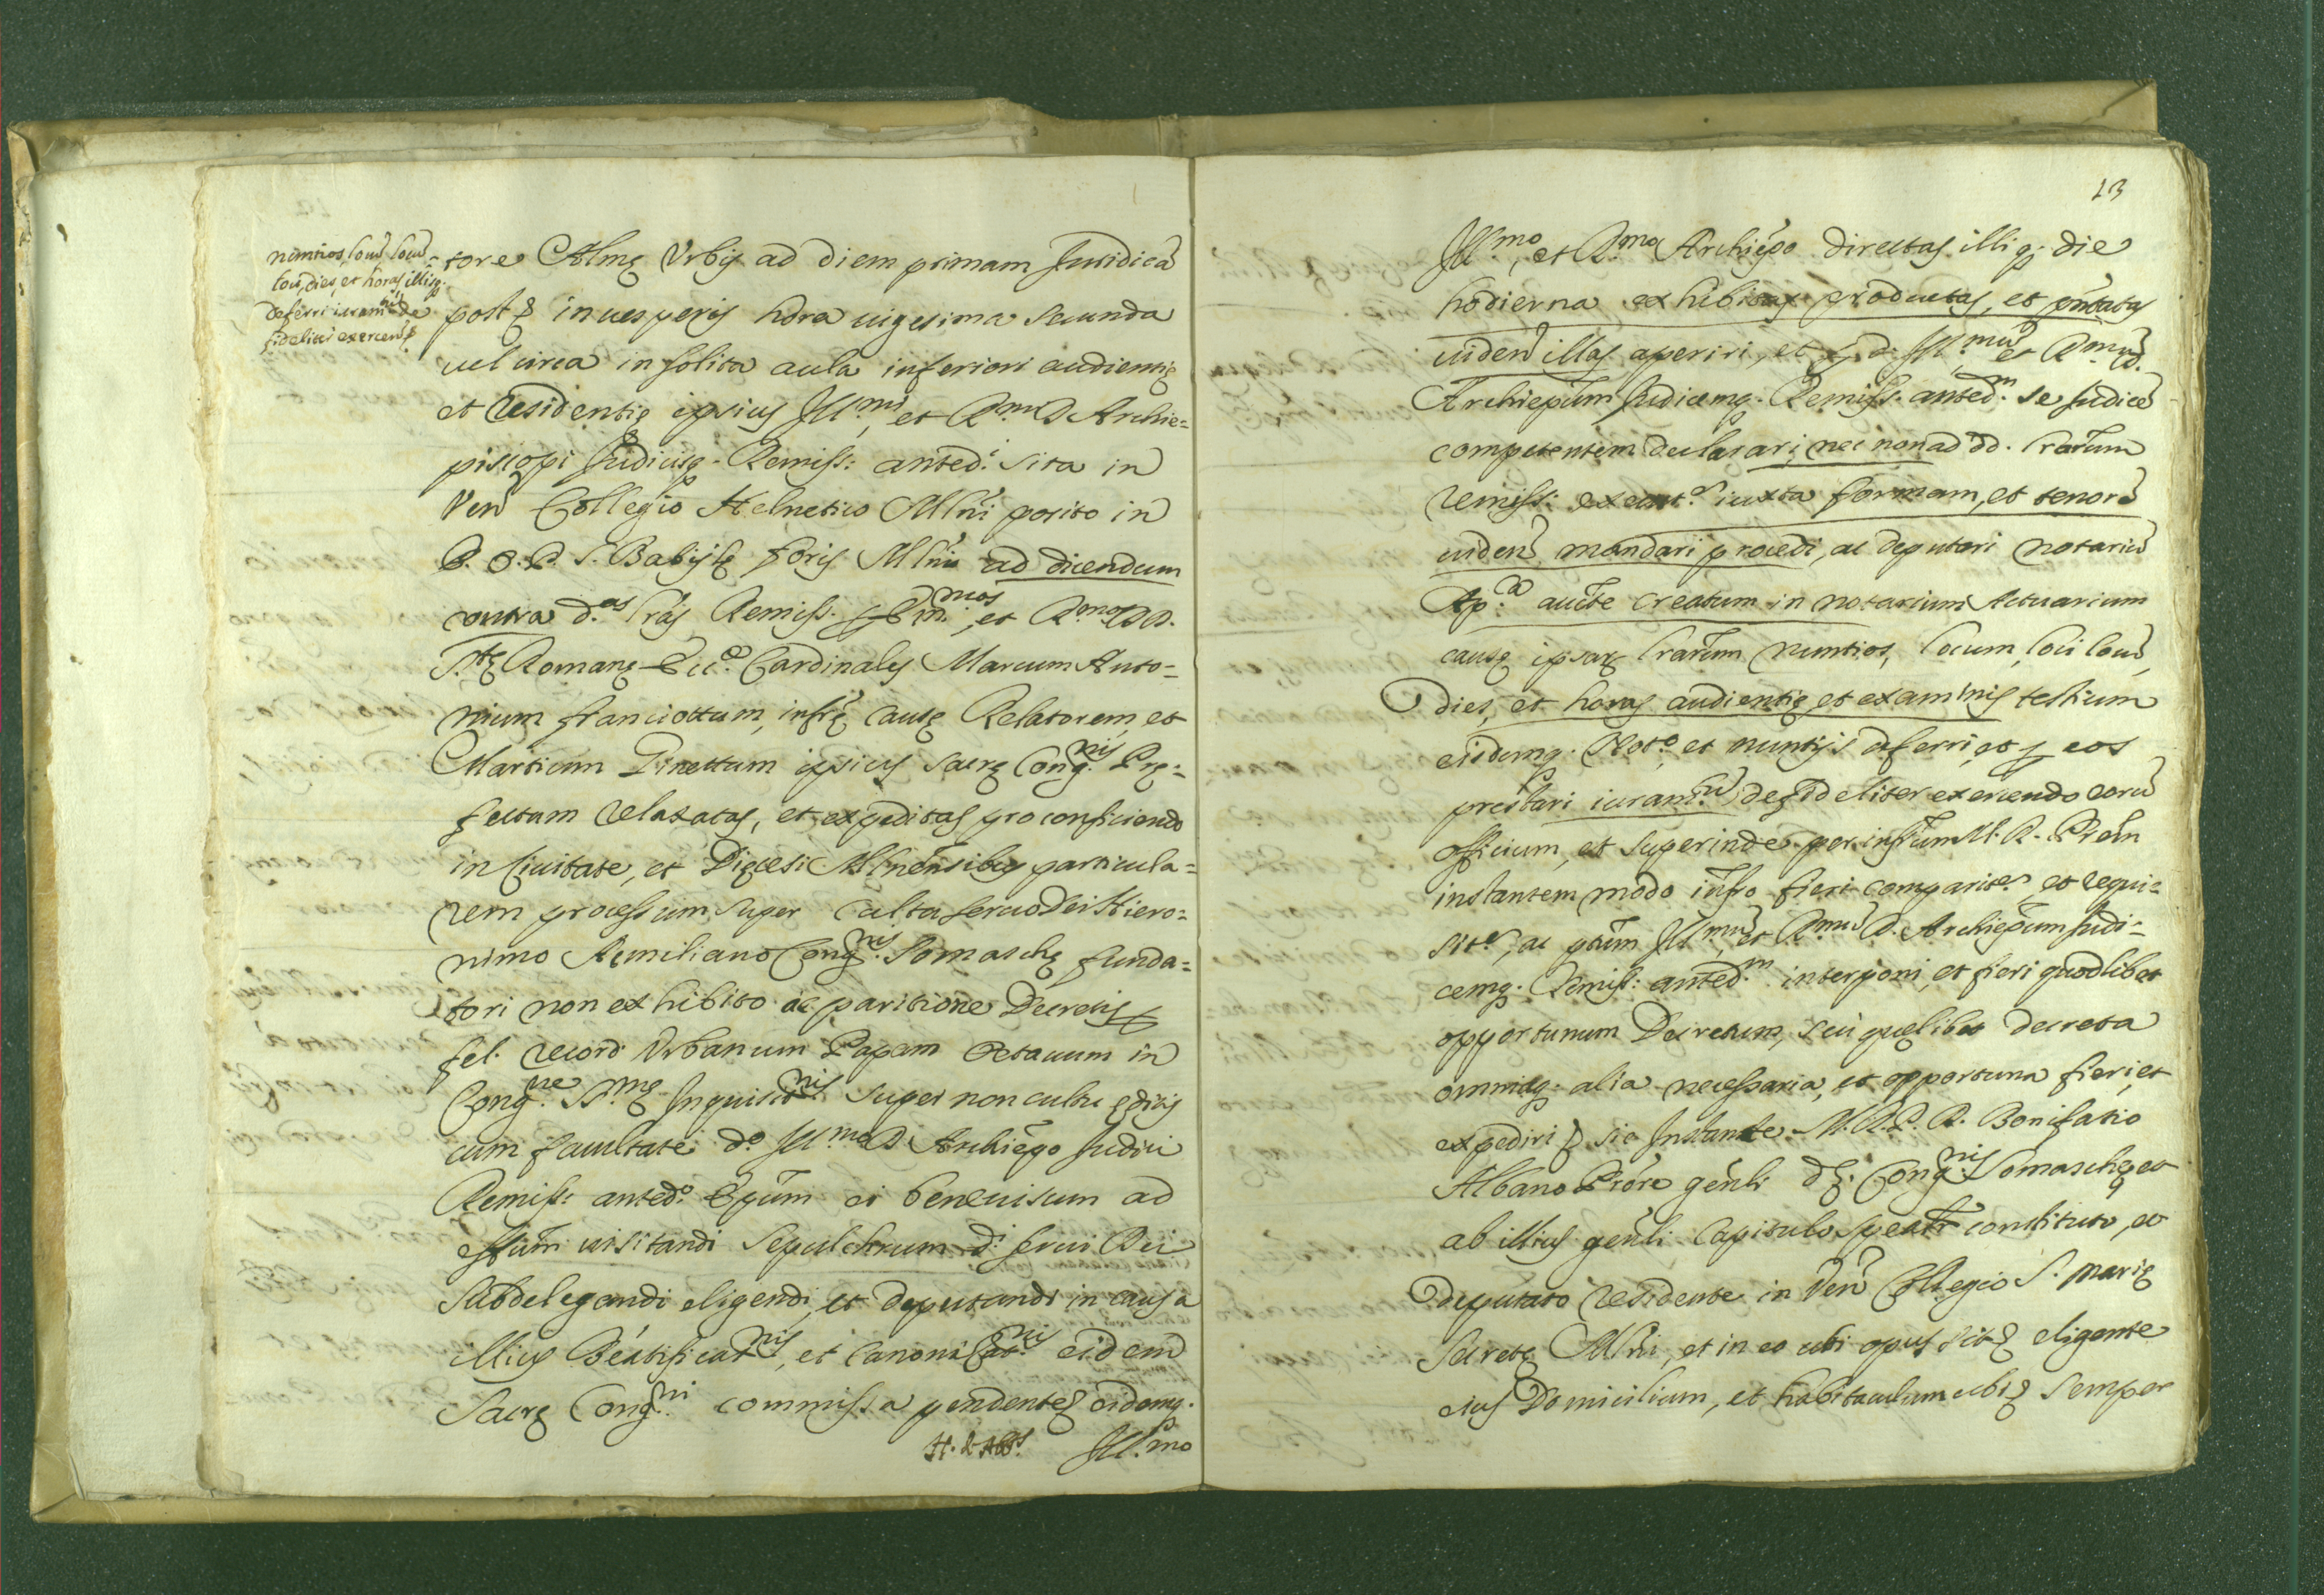 nuntios, locũ, loci
loci, dies, et horas illisq.
deferri iuram.tũ de
fideliter exercen.
tore Almę Vrbis ad diem primam Juridicã
post in uesperis hora uigesima secunda
uel circa in solita aula inferiori audientię
et residentię ipsius Ill.mi, et R.mi D Archie=
piscopi Judicisq. Remiss: anted.i sita in
Ven Collegio Heluetico Mlni posito in
P. O. P. S. Babilę foris Mlni ad dicendum
contra d.as lrãs Remiss. p Em.mos, et R.mos DD.
S.tę Romanę Ecc.ę Cardinales Marcum Anto=
nium franciottum, infrę causę Relatorem, et
Martium Ginettum ipsius Sacrę Cong.nis Prę=
fectum relaxatas, et expeditas pro conficiendo
in Ciuitate, et Dięcesi Mlnensibus particula=
rem processum super cultu seruo Dei Hiero=
nimo Aemiliano Cong.nis Somaschę funda=
tori non exhibito ac paritione Decretis p
fel. record. Vrbanum Papam Octauum in
Cong.ne S.mę Inquisit.nis super non cultu editis
cum facultate d.o Ill.mo D Archiepo Judici
Remiss: anted.o Epum ei beneuisum ad
effum uisitandi Sepulchrum d.i serui Dei
Subdelegandi eligendi, et deputandi in causa
illius Beatificat.nis, et Canonizat.nis eidem
Sacrę Cong.ni commissa pendente eidemq.
Ill.mo
13
Ill.mo, et R.mo Archiepo directas illiq. die
hodierna exhibitas productas, et pñtatas
uiden illas aperiri, et p d. Ill.mũ et R.mũ D.
Archiepum Judicemq. Remiss. anted.m se Judicẽ
competentem declarari, nec non ad dd. lrarum
remiss: execut.s iuxta formam, et tenorẽ
uiden mandari procedi, ac deputari notariũ
Ap.ca aucte creatum in notarium Actuarium
causę ipsarum lrarum nuntios, locum, loci locũ,
dies, et horas audientię et examinis testium
eisdemq. Not.o et nuntijs deferri, et p eos
prestari iuram.tũ de fideliter exercendo eorũ
officium, et superinde per infrum M. R. Prem
instantem modo infro fieri comparit.s et requi=
sit.s, ac ptum Ill.mũ, et R.mũ D. Archiepum Judi=
cemq. Remiss: anted.m interponi, et fieri quodlibet
opportunum Decretum, seu quęlibet decreta
omniaq. alia necessaria, et opportuna fieri, et
expediri sic Instante M. R. P. D. Bonifatio
Albano Prõre genli dę. Cong.nis Somaschę, et
ab illius genli Capitulo spealr constituto, et
deputato residente in Ven Collegio S. Marię
Secretę Mlni, et in eo ubi opus sit eligente
eius Domicilium, et habitaculum ubi semper